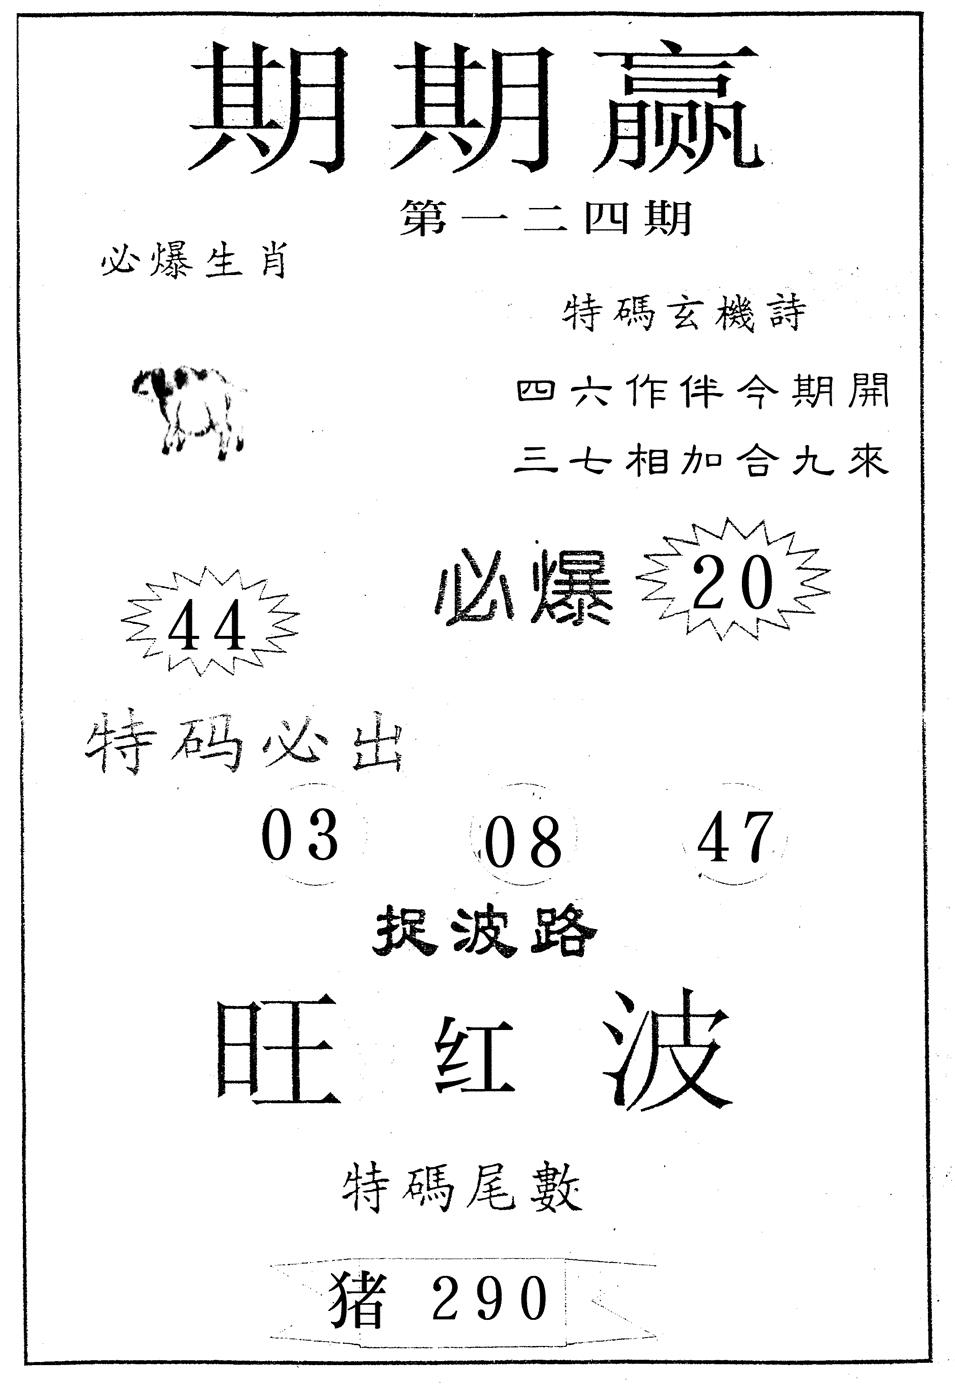 期期赢
第一二四期
必爆生肖
特碼玄機詩
四六作伴今期開
三七相加合九來
必爆 20
44
特码必出
03 08 47
捉波路
旺红波
特碼尾數
猪 290